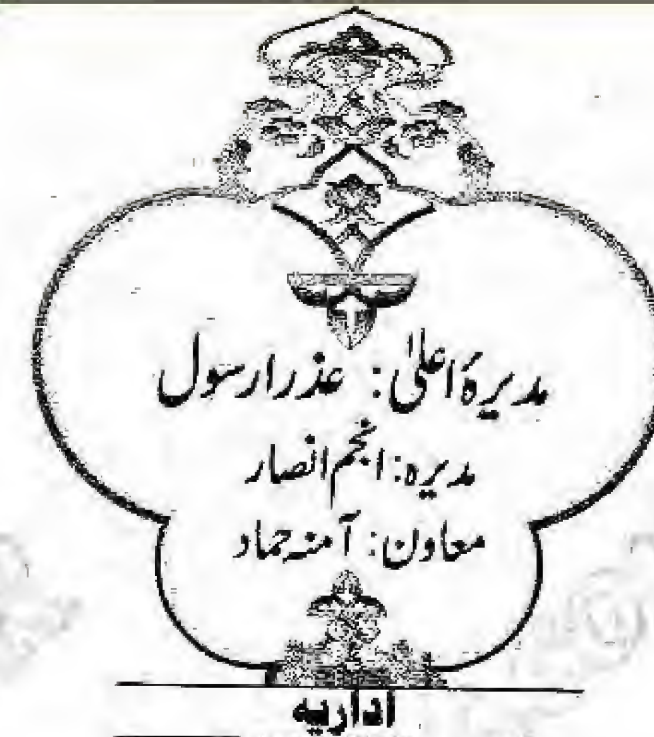 مدیرۂ اعلیٰ: عذرا رسول
مدیرہ: انجم انصار
معاون: آمنہ حماد
اداریہ